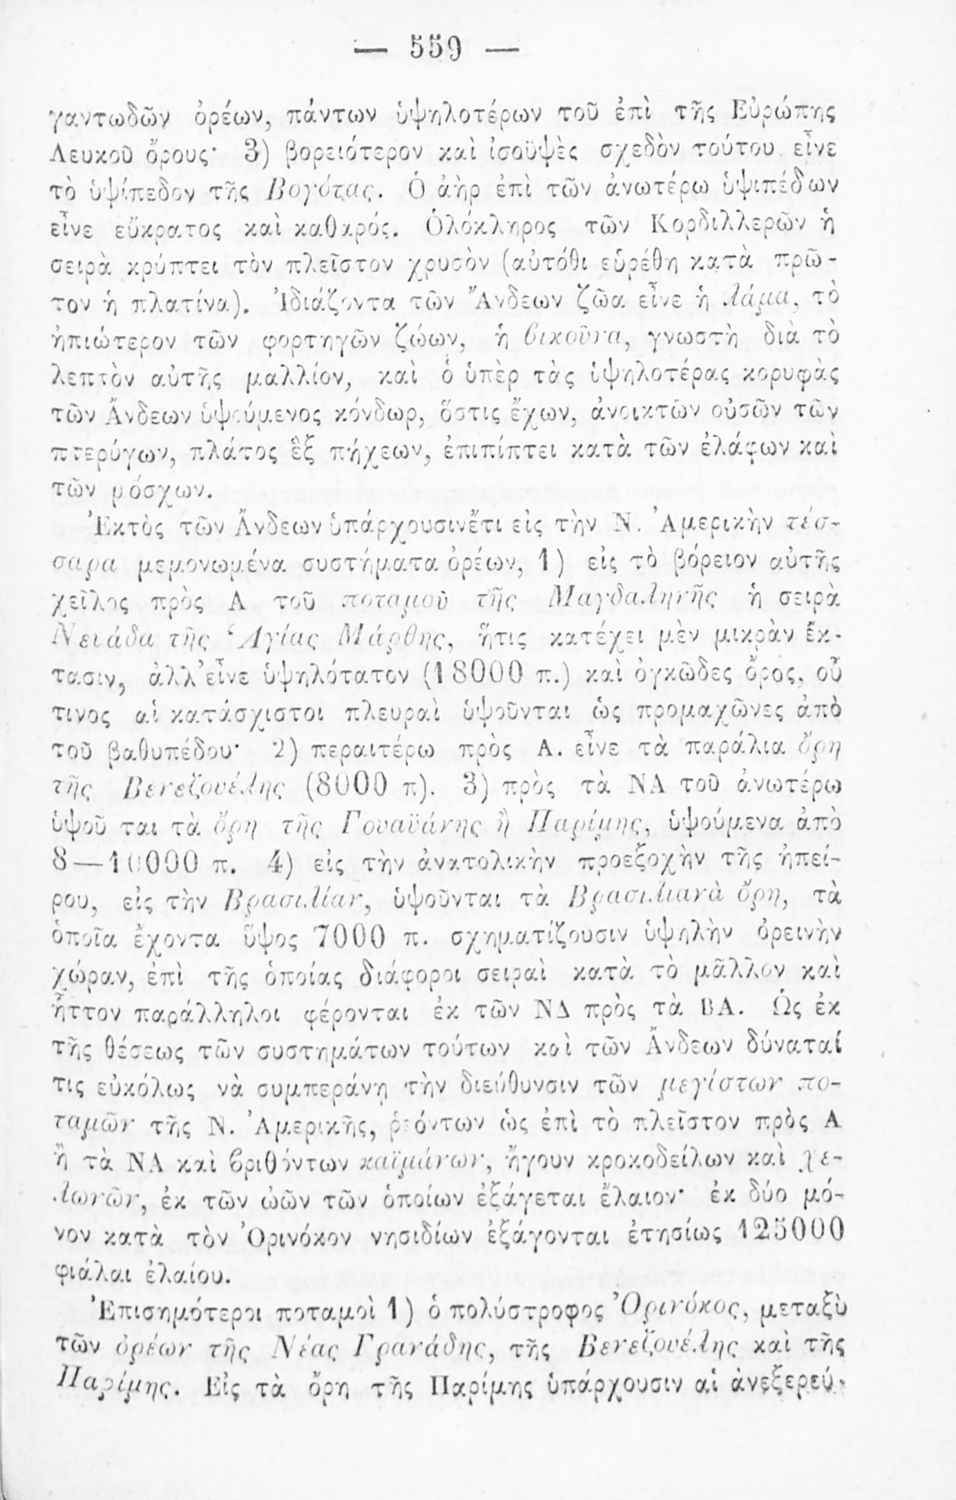 — 559 —
γαντωδῶν ὀρέων, πάντων ὑψηλοτέρων τοῦ ἐπὶ τῆς Εὐρώπης
Λευκοῦ ὄρους· 3) βορειότερον καὶ ἰσοϋψὲς σχεδὸν τούτου εἶνε
τὸ ὑψίπεδον τῆς Βογότας. Ὁ ἀὴρ ἐπὶ τῶν ἀνωτέρω ὑψιπέδων
εἶνε εὔκρατος καὶ καθαρός. Ὁλόκληρος τῶν Κορδιλλερῶν ἡ
σειρὰ κρύπτει τὸν πλεῖστον χρυσὸν (αὐτόθι εὑρέθη κατὰ πρῶ-
τον ἡ πλατίνα). Ἰδιάζοντα τῶν Ἄνδεων ζῶα εἶνε ἡ λάμα, τὸ
ἠπιώτερον τῶν φορτηγῶν ζώων, ἡ βικοῦνα, γνωστὴ διὰ τὸ
λεπτὸν αὐτῆς μαλλίον, καὶ ὁ ὑπὲρ τὰς ὑψηλοτέρας κορυφὰς
τῶν Ἄνδεων ὑψούμενος κόνδωρ, ὅστις ἔχων, ἀνοικτῶν οὐσῶν τῶν
πτερύγων, πλάτος ἓξ πήχεων, ἐπιπίπτει κατὰ τῶν ἐλάφων καὶ
τῶν μόσχων.
Ἐκτὸς τῶν Ἄνδεων ὑπάρχουσιν ἔτι εἰς τὴν Ν. Ἀμερικὴν τέσ-
σαρα μεμονωμένα συστήματα ὀρέων, 1) εἰς τὸ βόρειον αὐτῆς
χεῖλος πρὸς Α τοῦ ποταμοῦ τῆς Μαγδαληνῆς ἡ σειρὰ
Νειάδα τῆς Ἁγίας Μάρθης, ἥτις κατέχει μὲν μικρὰν ἔκ-
τασιν, ἀλλ' εἶνε ὑψηλότατον (18000 π.) καὶ ὀγκῶδες ὄρος, οὗ
τινος αἱ κατάσχιστοι πλευραὶ ὑψοῦνται ὡς προμαχῶνες ἀπὸ
τοῦ βαθυπέδου· 2) περαιτέρω πρὸς Α. εἶνε τὰ παράλια ὄρη
τῆς Βενεζουέλης (8000 π). 3) πρὸς τὰ ΝΑ τοῦ ἀνωτέρω
ὑψοῦ ται τὰ ὄρη τῆς Γουαϋάνης ἢ Παρίμης, ὑψούμενα ἀπὸ
8—10000 π. 4) εἰς τὴν ἀνατολικὴν προεξοχὴν τῆς ἠπεί-
ρου, εἰς τὴν Βρασιλίαν, ὑψοῦνται τὰ Βρασιλιανὰ ὄρη, τὰ
ὁποῖα ἔχοντα ὕψος 7000 π. σχηματίζουσιν ὑψηλὴν ὀρεινὴν
χώραν, ἐπὶ τῆς ὁποίας διάφοροι σειραὶ κατὰ τὸ μᾶλλον καὶ
ἧττον παράλληλοι φέρονται ἐκ τῶν ΝΔ πρὸς τὰ ΒΑ. Ὡς ἐκ
τῆς θέσεως τῶν συστημάτων τούτων καὶ τῶν Ἄνδεων δύναταί
τις εὐκόλως νὰ συμπεράνῃ τὴν διεύθυνσιν τῶν μεγίστων πο-
ταμῶν τῆς Ν. Ἀμερικῆς, ῥεόντων ὡς ἐπὶ τὸ πλεῖστον πρὸς Α
ἢ τὰ ΝΑ καὶ βριθόντων καϊμάνων, ἤγουν κροκοδείλων καὶ χε-
λωνῶν, ἐκ τῶν ὠῶν τῶν ὁποίων ἐξάγεται ἔλαιον· ἐκ δύο μό-
νον κατὰ τὸν Ὀρινόκον νησιδίων ἐξάγονται ἐτησίως 125000
φιάλαι ἐλαίου.
Ἐπισημότεροι ποταμοὶ 1) ὁ πολύστροφος Ὀρινόκος, μεταξὺ
τῶν ὀρέων τῆς Νέας Γρανάδης, τῆς Βενεζουέλης καὶ τῆς
Παρίμης. Εἰς τὰ ὄρη τῆς Παρίμης ὑπάρχουσιν αἱ ἀνεξερεύ-